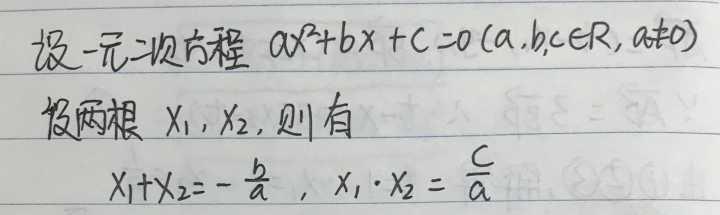 设一元二次方程 ax²+bx+c=0 (a,b,c∈R, a≠0)
设两根 x₁, x₂, 则有
x₁+x₂=-b/a , x₁·x₂=c/a